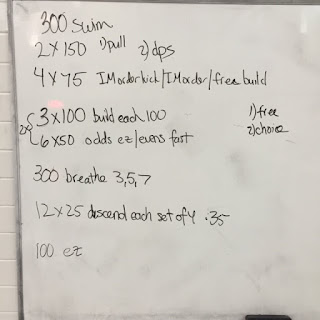 300 swim
2x150 1) pull 2) dps
4x75 IMorder kick/IMorder/free build
2x { 3x100 build each 100 1) free
6x50 odds ez/evens fast 2) choice
300 breathe 3,5,7
12x25 descend each set of 4 :35
100 ez